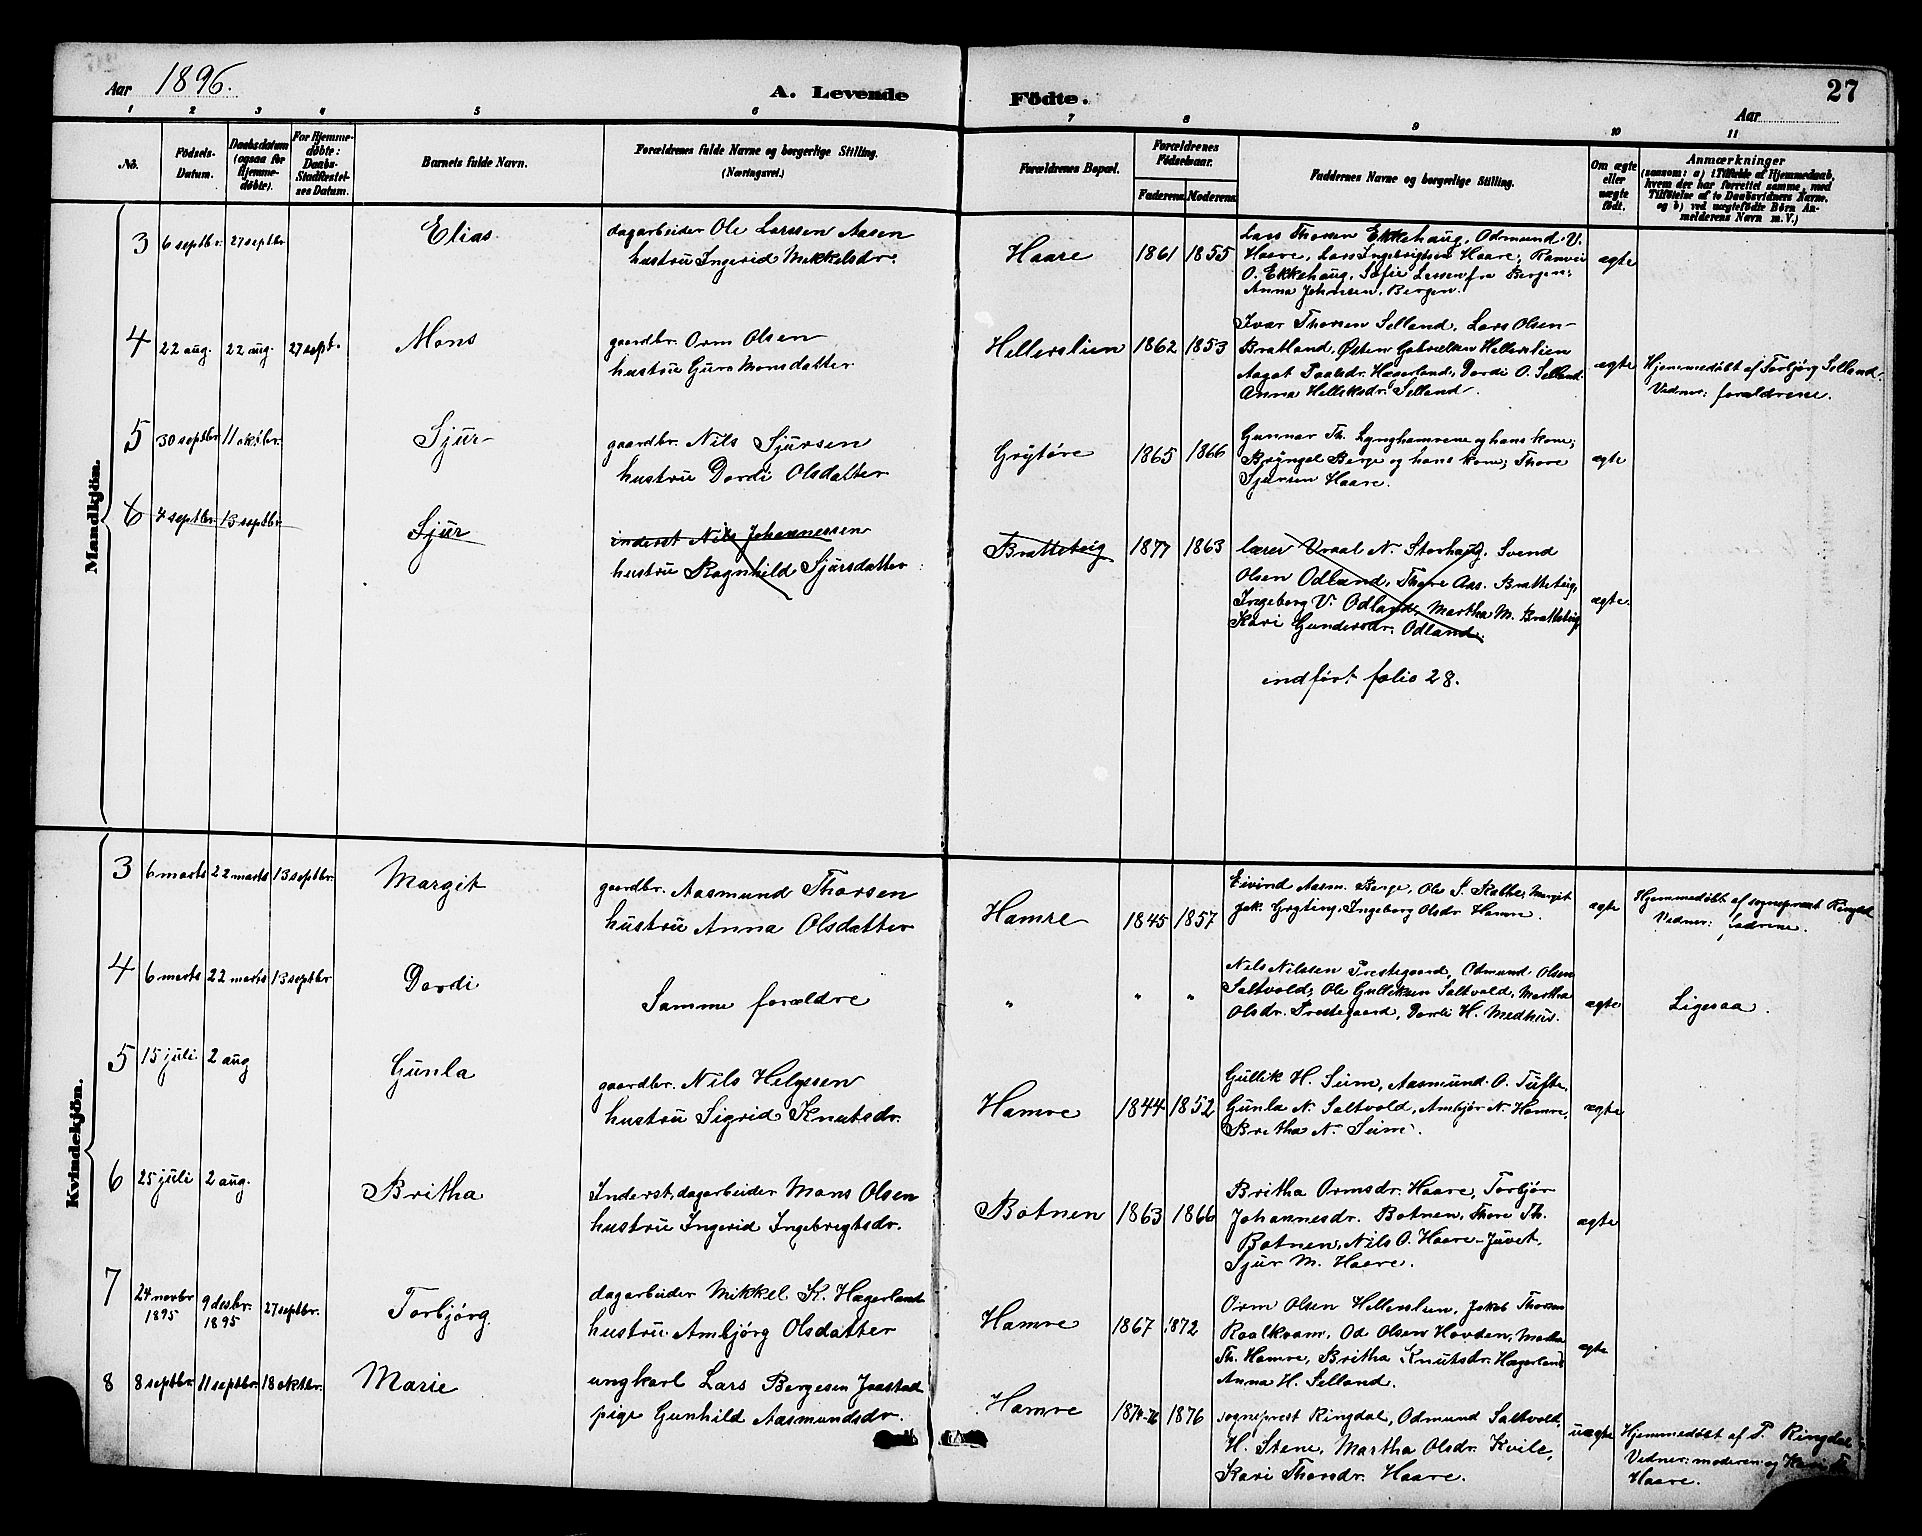 Aar 1896.
A. Levende Födte.
Aar
27
1 2 3 4 5 6 7 8 9 10 11
No.
Födsels-Datum.
Daabsdatum (ogsaa for Hjemme-döbte).
For Hjemme-döbte: Daabs-Stadfæstel-ses Datum.
Barnets fulde Navn.
Forældrenes fulde Navne og borgerlige Stilling. (Næringsvei.)
Forældrenes Bopæl.
Forældrenes Födselsaar.
Faderens Moderens
Faddernes Navne og borgerlige Stilling.
Om ægte eller uægte födt.
Anmærkninger
(saasom: a) i Tilfælde af Hjemmedaab,
hvem der har forrettet samme, med
Tilföielse af to Daabsvidners Navne.
og b) ved uægtefödte Börn An-
melderens Navn m. V.)
Mandkjön.
3 6 septbr. 27 septbr. Elias
dagarbeider Ole Larssen Aasen
hustru Ingerid Mikkelsdr.
Haare 1861 1855
Lars Thorsen Ekkehaug, Odmund V.
Haare, Lars Ingebrigtsen Haare, Ranvei
O. Ekkehaug, Sofie Larsen fra Bergen,
Anna Johnsen, Bergen.
ægte
4 22 aug. 22 aug. 27 sept. Mons
gaardbr. Orm Olsen
hustru Guro Monsdatter
Hellerslien 1862 1853
Ivar Thorsen Selland, Lars Olsen
Bratland, Østen Gabrielsen Hellerslien
Aagot Paalsdr. Hægerland, Dordi O. Selland
Anna Helliksdr. Selland.
ægte
Hjemmedøbt af Torbjørg Selland.
Vidner: forældrene.
5 30 septbr. 11 oktbr. Sjur
gaardbr. Nils Sjursen
hustru Dordi Olsdatter
Grytøre 1865 1866
Gunnar Th. Lynghamrene og hans kone,
Bryngel Berge og hans kone, Thore
Sjursen Haare.
ægte
6 4 septbr. 13 septbr. Sjur
inderst Nils Johannessen
hustru Ragnhild Sjursdatter
Bratteteig 1877 1863
lærer Vraal N. Storhaug, Svend
Olsen Odland, Thore Aas. Bratteteig,
Ingeborg V. Odland, Martha M. Bratteteig
Kari Gundersdr. Odland.
ægte.
indført folio 28.
Kvindekjön.
3 6 marts 22 marts 13 septbr. Margit
gaardbr. Aasmund Thorsen
hustru Anna Olsdatter
Hamre 1845 1857
Eivind Aasm. Berge, Ole S. Rabbe, Margit
Jak. Gryting, Ingeborg Olsdr. Hamre.
ægte
Hjemmedøbt af sogneprest Ringdal
Vidner: fadrene.
4 6 marts 22 marts 13 septbr. Dordi
Samme forældre
" " "
Nils Nilssen Prestegaard, Odmund Olsen
Saltvold, Ole Gulliksen Saltvold, Martha
Olsdr. Prestegaard, Dordi H. Medhus.
ægte
Ligesaa.
5 15 juli 2 aug Gunla
gaardbr. Nils Helgesen
hustru Sigrid Knutsdr.
Hamre 1844 1852
Gullik H. Seim, Aasmund O. Tufte,
Gunla N. Saltvold, Ambjør N. Hamre,
Britha N. Seim.
ægte
6 25 juli 2 aug. Britha
Inderst, dagarbeider Mons Olsen
hustru Ingerid Ingebregtsdr.
Botnen 1863 1866
Britha Ormsdr. Haare, Torbjør
Johannesdr. Botnen, Thore Th.
Botnen, Nils O. Haare-Juvet,
Sjur M. Haare.
ægte
7 24 novbr 1895 9 desbr. 1895 27 septbr. Torbjørg
dagarbeider Mikkel K. Hægerland
hustru Ambjørg Olsdatter
Hamre 1867 1872
Orm Olsen Hellerslien, Jakob Thorsen
Roalkvam, Od Olsen Hovden, Martha
Th. Hamre, Britha Knutsdr. Hægerland
Anna H. Selland.
ægte
8 8 septbr. 11 septbr. 18 oktbr. Marie
ungkarl Lars Børgesen Jaastad
pige Gunhild Aasmundsdr.
Hamre 1876
sogneprest Ringdal, Odmund Saltvold,
H. Stene, Martha Olsdr. Kvile,
Kari Thorsdr. Haare.
uægte
Hjemmedøbt af P. Ringdal
Vidner: moderen og Kari
Haare.